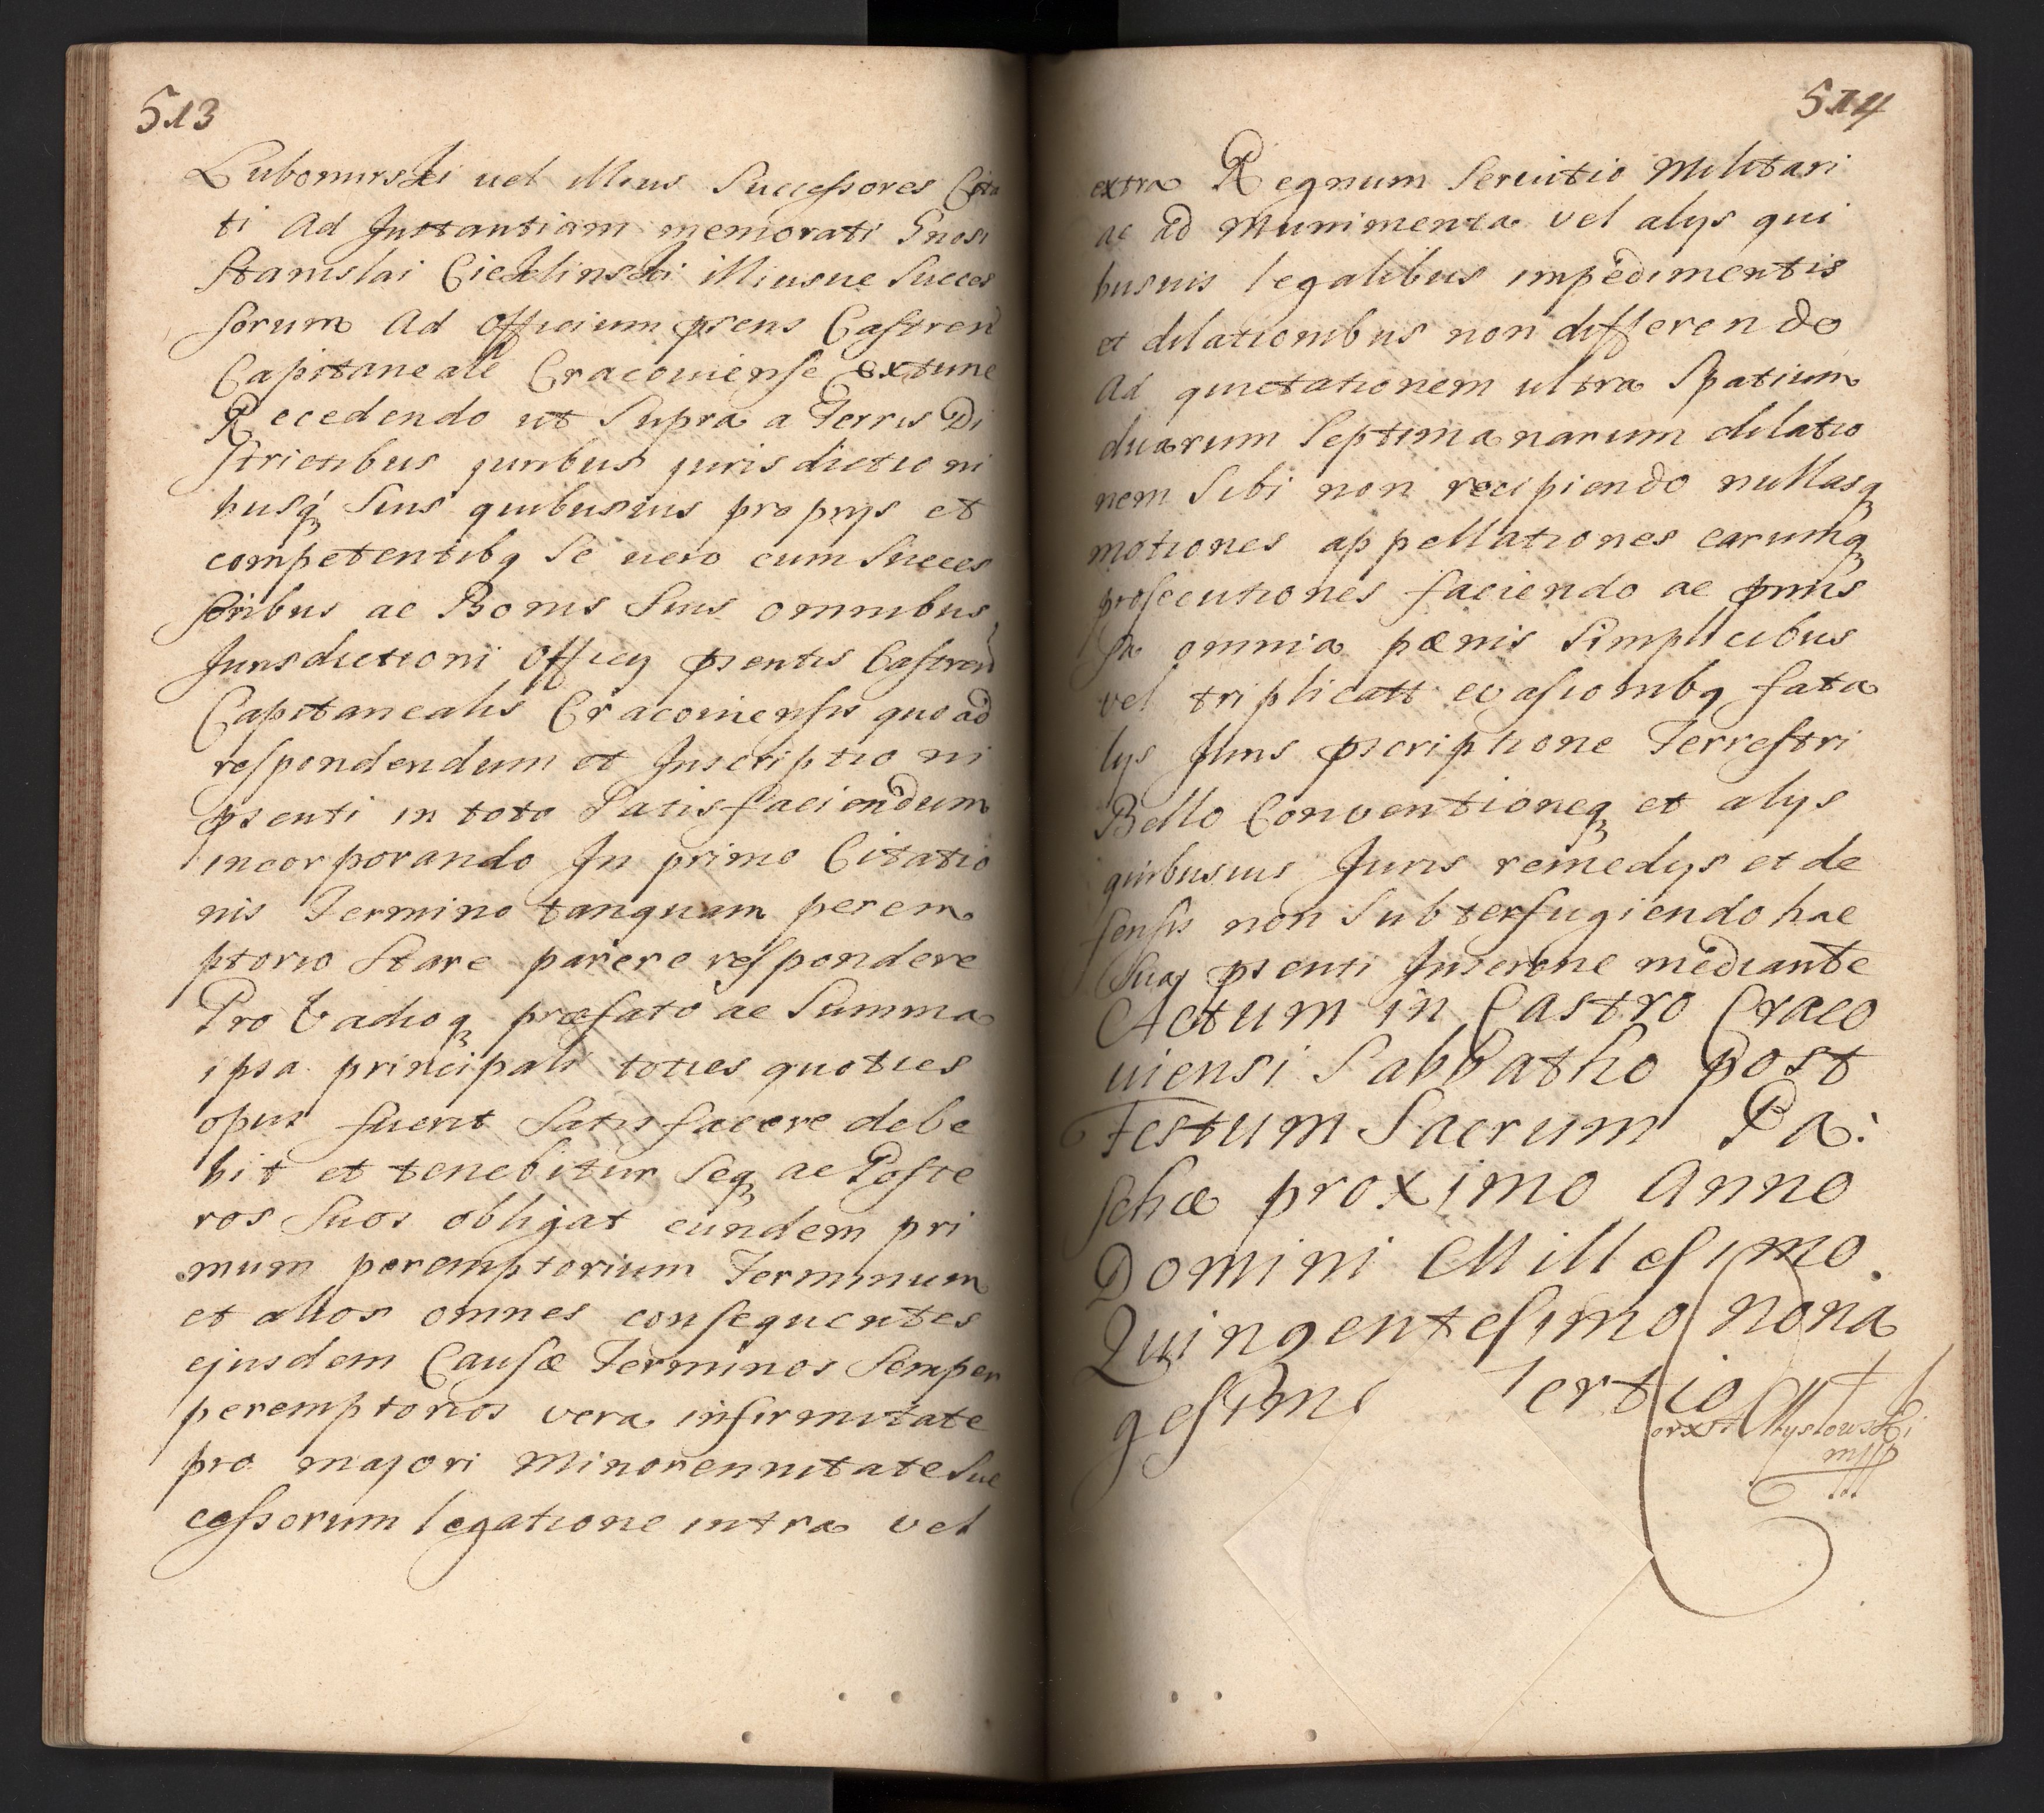 513
Lubomirski uel illius Successores Cita
ti Ad Instantiam memorati Gnosi
Stanislai Cieklinski illiusue Succes
sorum Ad Officium psens Castren
Capitaneale Cracouiense Extunc
Recedendo ut Supra a Terris Di
strictibus juribus jurisdictioni
busq suis quibusuis proprijs et
competentibq Se uero cum Succes
soribus ac Bonis Suis omnibus
Jurisdictioni Officij psentis Castren
Capitanealis Cracouiensis quo ad
respondendum et Inscriptioni
psenti in toto Satisfaciendum
incorporando In primo Citatio
nis Termino tanquam perem
ptorio Stare parere respondere
Pro Vadioq præfato ac Summa
ipsa principali toties quoties
opus fuerit Satisfacere debe
bit et tenebitur Seq ac Poste
ros Suos obligat eundem pri
mum peremptorium Terminum
et alios omnes consequentes
ejusdem Causæ Terminos Semper
peremptorios vera infirmitate
pro majori Minorennitate Suc
cessorum legatione intra vel
514
extra Regnum Seruitio Militari
ac ad Munimenta vel alijs qui
busuis legalibus impedimentis
et dilationibus non differendo
Ad quietationem ultra Spatium
duarum Septimanarum dilatio
nem Sibi non recipiendo nullasq
motiones appellationes earumq
prosecutiones faciendo ac pmis
sa omnia pœnis Simplicibus
vel triplicatt euasionibq fata
lijs Juris pscriptione Terrestri
Bello Conventioneq et alijs
quibusuis Juris remedijs et de
fensis non Subterfugiendo hac
Sua psenti Inscrone mediante
Actum in Castro Craco
uiensi Sabbatho post
Festum Sacrum Pa:
schæ proximo Anno
Domini Millesimo
Quingentesimo nona
gesimo Tertio
Mysłowski
mpp